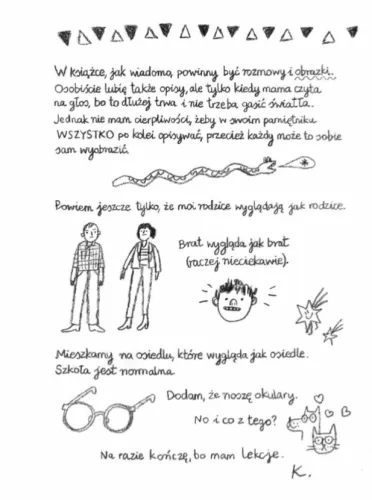 W książce, jak wiadomo, powinny być rozmowy i obrazki.
Osobiście lubię także opisy, ale tylko kiedy mama czyta
na głos, bo to dłużej trwa i nie trzeba gasić światła.
Jednak nie mam cierpliwości, żeby w swoim pamiętniku
WSZYSTKO po kolei opisywać, przecież każdy może to sobie
sam wyobrazić.
Powiem jeszcze tylko, że moi rodzice wyglądają jak rodzice.
Brat wygląda jak brat
(raczej nieciekawie).
Mieszkamy na osiedlu, które wygląda jak osiedle.
Szkoła jest normalna.
Dodam, że noszę okulary.
No i co z tego?
Na razie kończę, bo mam lekcje.
K.